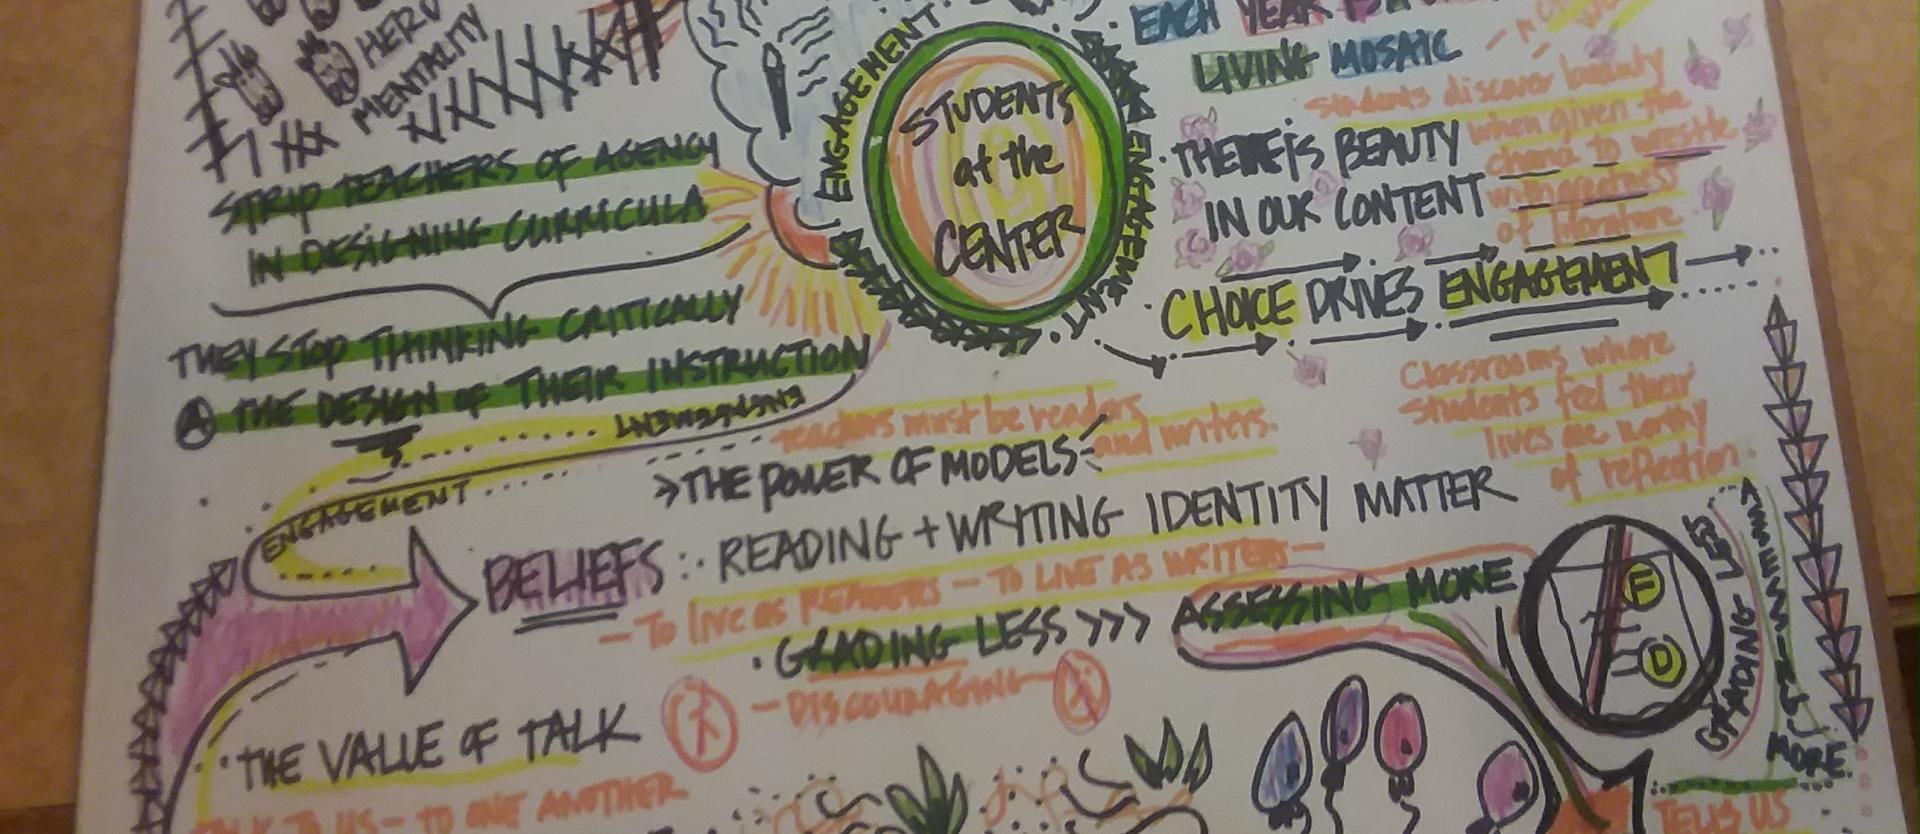 HERO
MENTALITY
STRIP TEACHERS OF AGENCY
IN DESIGNING CURRICULA
THEY STOP THINKING CRITICALLY
THE DESIGN OF THEIR INSTRUCTION
ENGAGEMENT
ENGAGEMENT
ENGAGEMENT
STUDENTS
at the
CENTER
ENGAGEMENT
EACH YEAR IS A
LIVING MOSAIC
students discover beauty
when given the
to wrestle
with greatness
of literature
THERE IS BEAUTY
IN OUR CONTENT
CHOICE DRIVES ENGAGEMENT
Classrooms where
students feel their
lives are worthy
of reflection
teachers must be readers
and writers.
THE POWER OF MODELS
BELIEFS: READING + WRITING IDENTITY MATTER
- To live as READERS - TO LIVE AS WRITERS -
• GRADING LESS >>> ASSESSING MORE
- DISCOURAGING -
F
D
GRADING LESS
MORE
THE VALUE OF TALK
TALK TO US - TO ONE ANOTHER
TELLS US